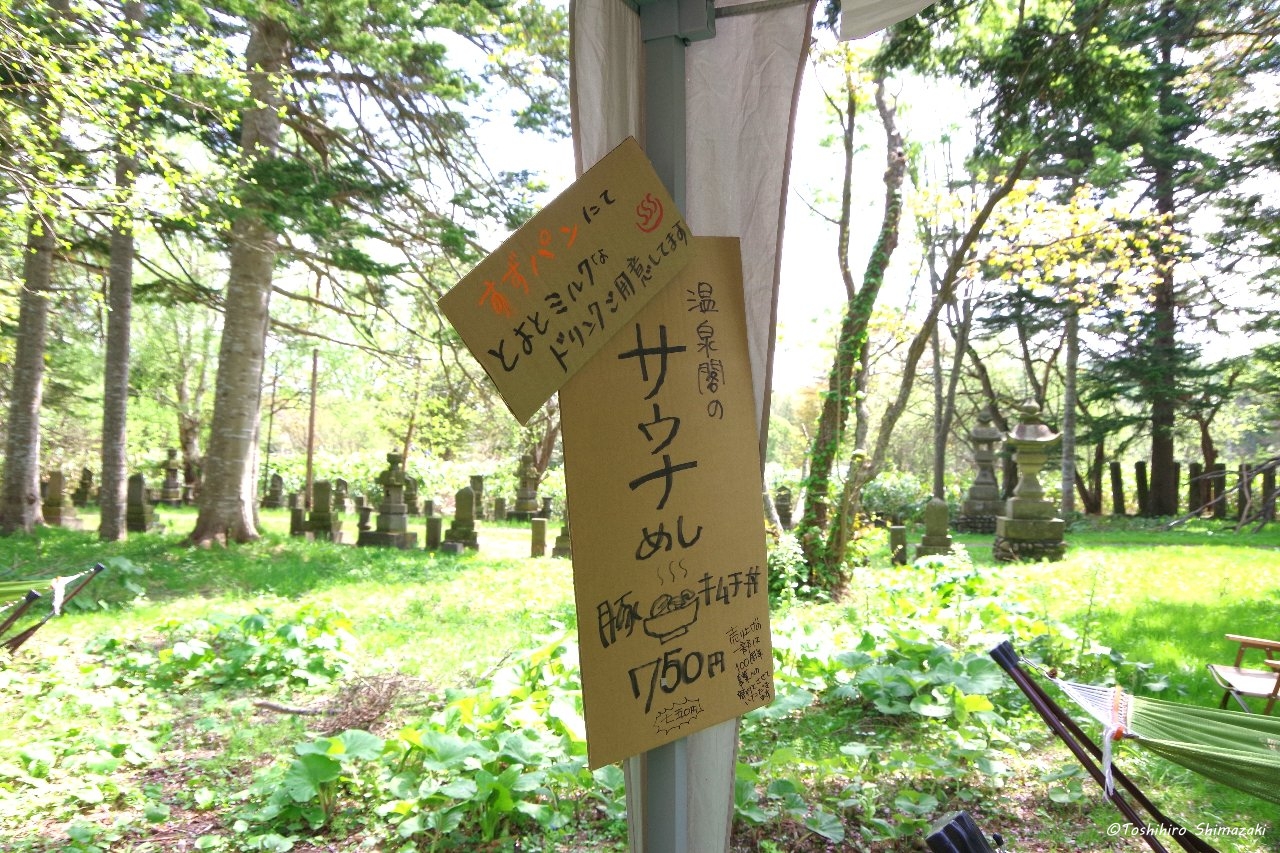 すずパンにて
とよとミルクな
ドリンクご用意してます
温泉閣の
サウナ
めし
豚キムチ丼
750円
売り上げの
一部は
100周年
©Toshihiro Shimazaki